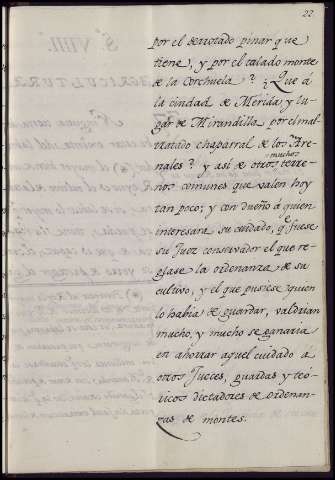 22.
por el derrotado pinar que
tiene, y por el talado monte
de la Corchuela? ¿Que á
la ciudad de Merida, y lu-
gar de Mirandilla por el mal-
tratado chaparral de los Are-
nales? y asi de otros muchos terre-
nos comunes que valen hoy
tan poco; y con dueño á quien
interesara su cuidado, q.e fuese
su Juez conservador el que re-
glase la ordenanza de su
cultivo, y el que pusiese quien
lo habia de guardar, valdrian
mucho, y mucho se ganaria
en ahorrar aquel cuidado á
otros Jueces, guardas y teó-
ricos dictadores de ordenan-
zas de montes.